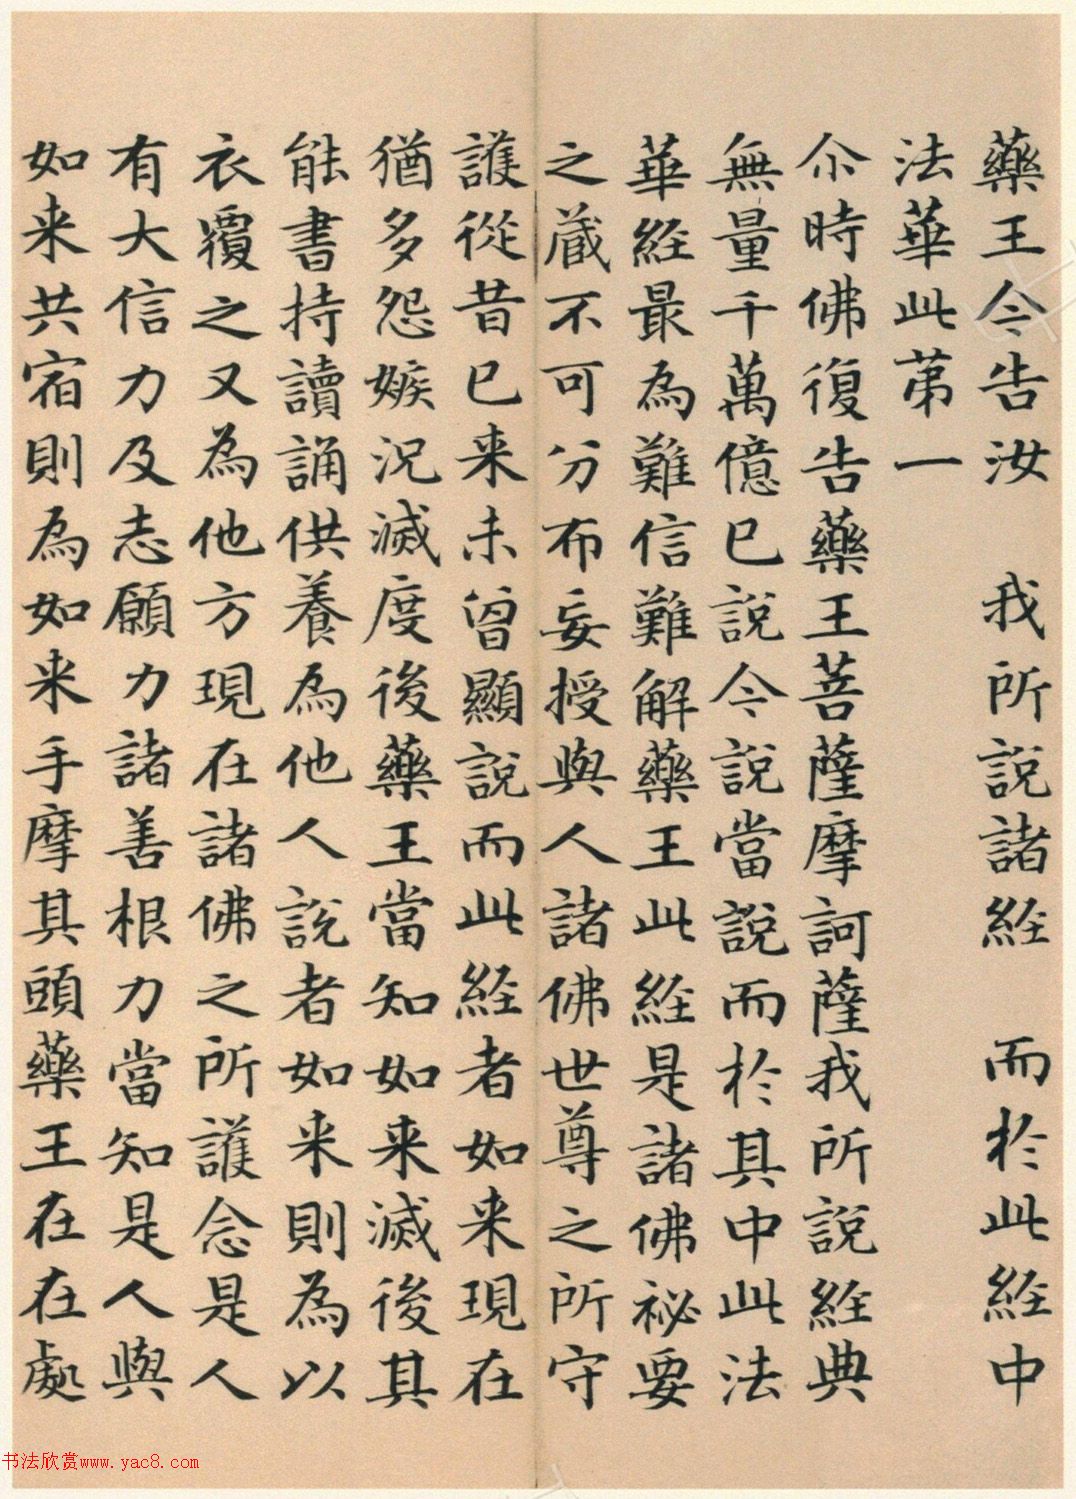 藥王今告汝　我所說諸經　而於此經中
法華此苐一
尒時佛復告藥王菩薩摩訶薩我所說經典
無量千萬億已說今說當說而於其中此法
華經最為難信難解藥王此經是諸佛祕要
之蔵不可分布妄授與人諸佛世尊之所守
護從昔已来未曾顯說而此經者如来現在
猶多怨嫉況滅度後藥王當知如来滅後其
能書持讀誦供養為他人說者如来則為以
衣覆之又為他方現在諸佛之所護念是人
有大信力及志願力諸善根力當知是人與
如来共宿則為如来手摩其頭藥王在在處
书法欣赏www.yac8.com